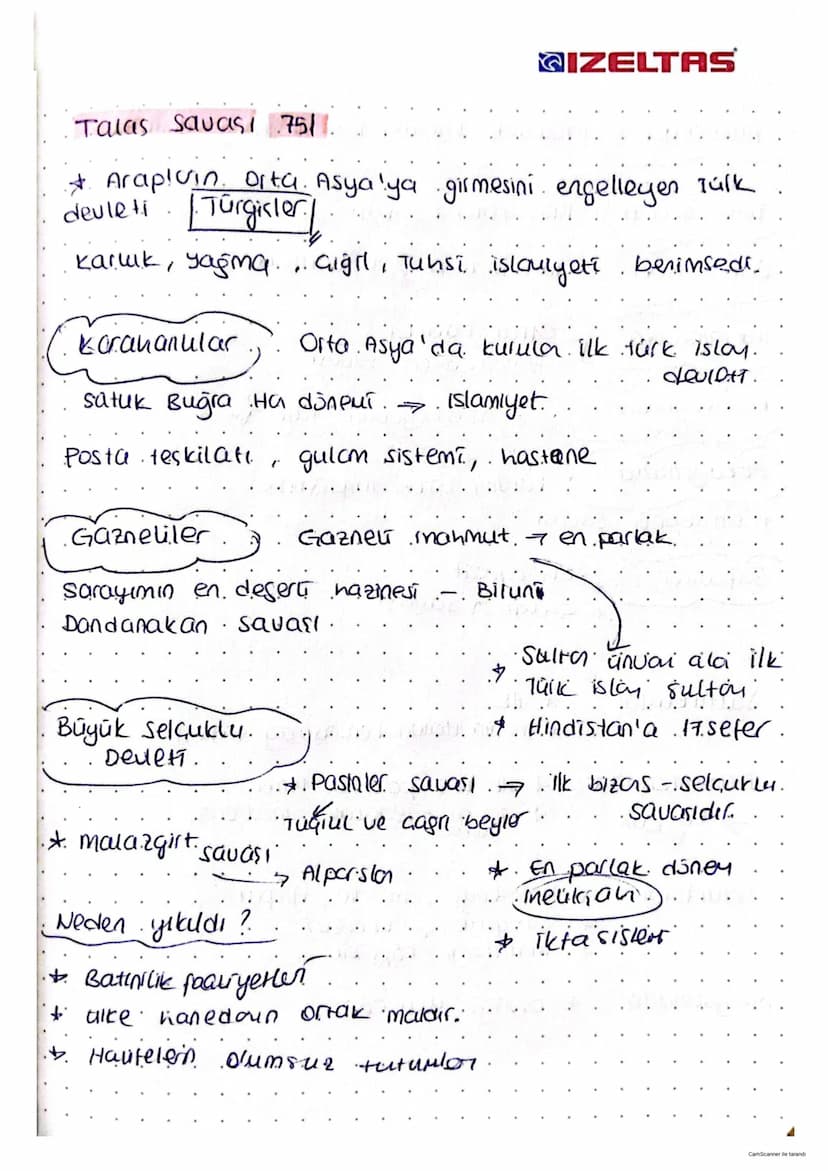 İZELTAŞ
Talas Savası 751
* Arapların Orta Asya'ya girmesini engelleyen Türk
devleti Türgisler
Karluk, Yağma, Çiğil, Tuhsi islamiyeti benimsedi.
Karahanlılar Orta Asya'da kurulan ilk türk islam
devleti.
Satuk Buğra Han dönemi → Islamiyet.
Posta teskilatı, gulam sistemi, hastane
Gazneliler Gazneli mahmut → en parlak
Sarayımın en değerli hazinesi - Biruni
Dandanakan savası
* Sultan ünvanı alan ilk
Türk islam sultanı
* Hindistan'a 17.sefer
Büyük Selçuklu
Devleti
* Pasinler savası → ilk bizans - selçuklu
savasıdır.
Tuğrul ve Çağrı beyler
* malazgirt savası
→ Alparslan
* En parlak dönem
melikşah
* ikta sistemi
Neden yıkıldı?
* Batınilik faaliyetleri
* ülke hanedanın ortak malıdır.
* Halifelerin olumsuz tutumları
CamScanner ile tarandı